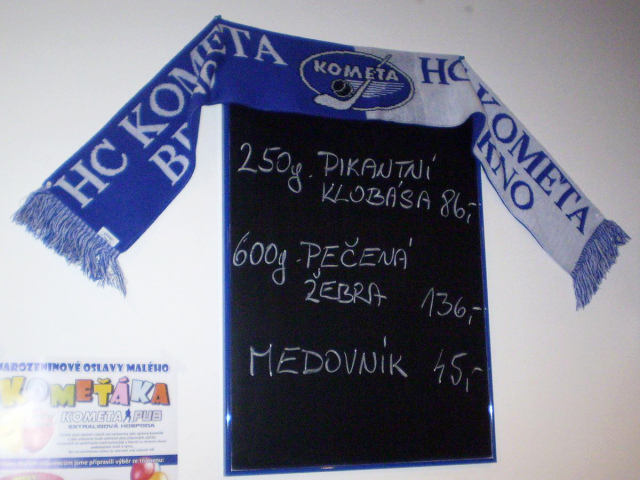 HC KOMETA
BR
KOMETA
HC KOMETA
RNO
250g. PIKANTNÍ
KLOBÁSA 86,-
600g. PEČENÁ
ŽEBRA 136,-
MEDOVNÍK 45,-
NAROZENINOVÉ OSLAVY MALÉHO
KOMEŤÁKA
KOMETA PUB
EXTRALIGOVÁ HOSPODA
jsme připravili výběr ze